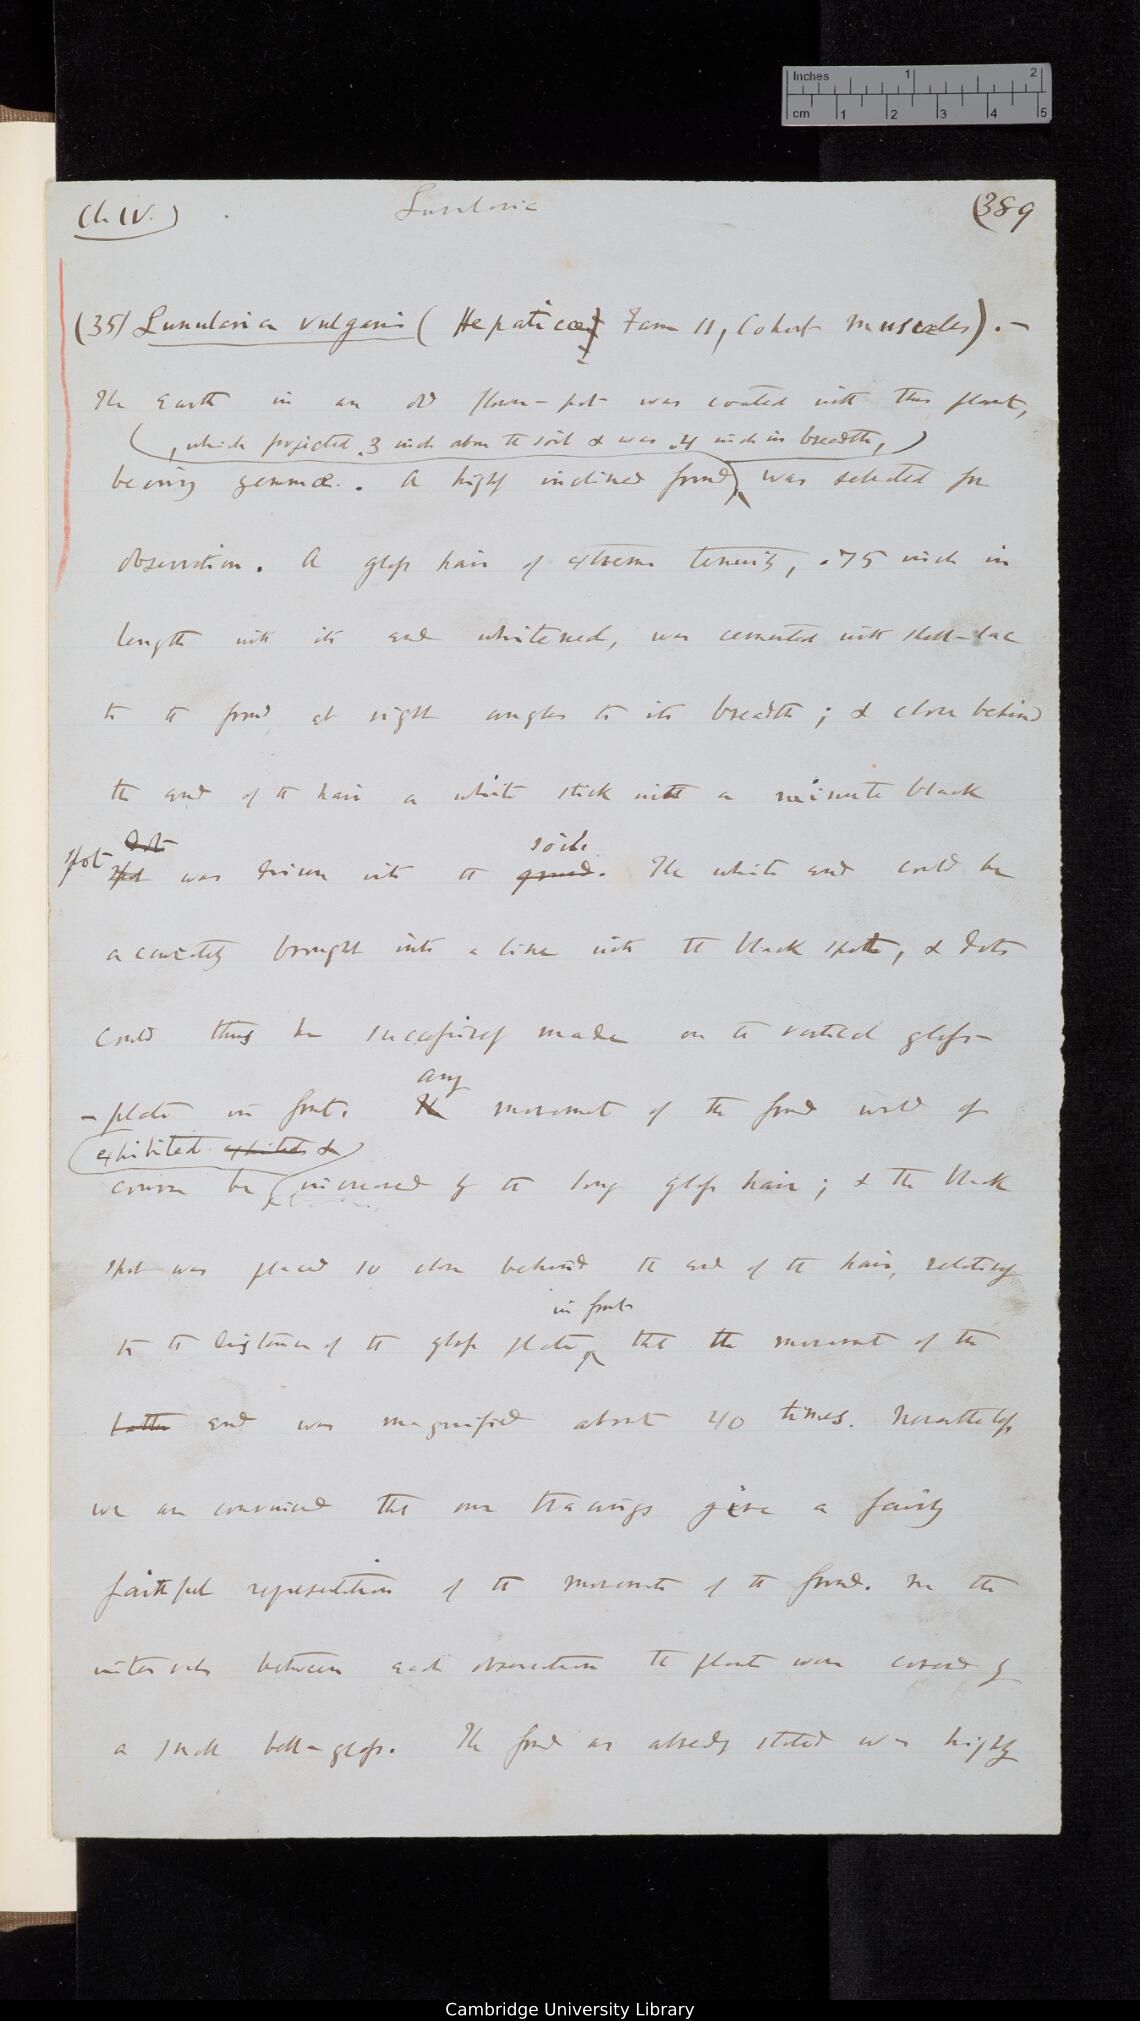 Inches 1 2
cm 1 2 3 4 5
Ch IV.) Lunularia (389
(35) Lunularia vulgaris (Hepaticæ, Fam 11, Cohort Muscales). —
The earth in an old flower-pot was coated with this plant,
, which projected .3 inch above the soil & was .4 inch in breadth,
bearing gemmæ. A highly inclined frond was selected for
observation. A glass hair of extreme tenuity, .75 inch in
length with its end whitened, was cemented with shell-lac
to the frond at right angles to its breadth; & close behind
the end of the hair a white stick with a minute black
dot soil
spot spot was driven into the ground. The white end could be
accurately brought into a line with the black spot, & dots
could thus be successively made on the vertical glass-
any
-plate in front. The movement of the frond would of
exhibited exhibited &
course be increased by the long glass hair; & the black
spot was placed so close behind the end of the hair, relatively
in front
to the distance of the glass plate that the movement of the
latter end was magnified about 40 times. Nevertheless
we are convinced that our tracings give a fairly
faithful representation of the movements of the frond. In the
intervals between each observation the plant were covered by
a small bell-glass. The frond as already stated was highly
Cambridge University Library